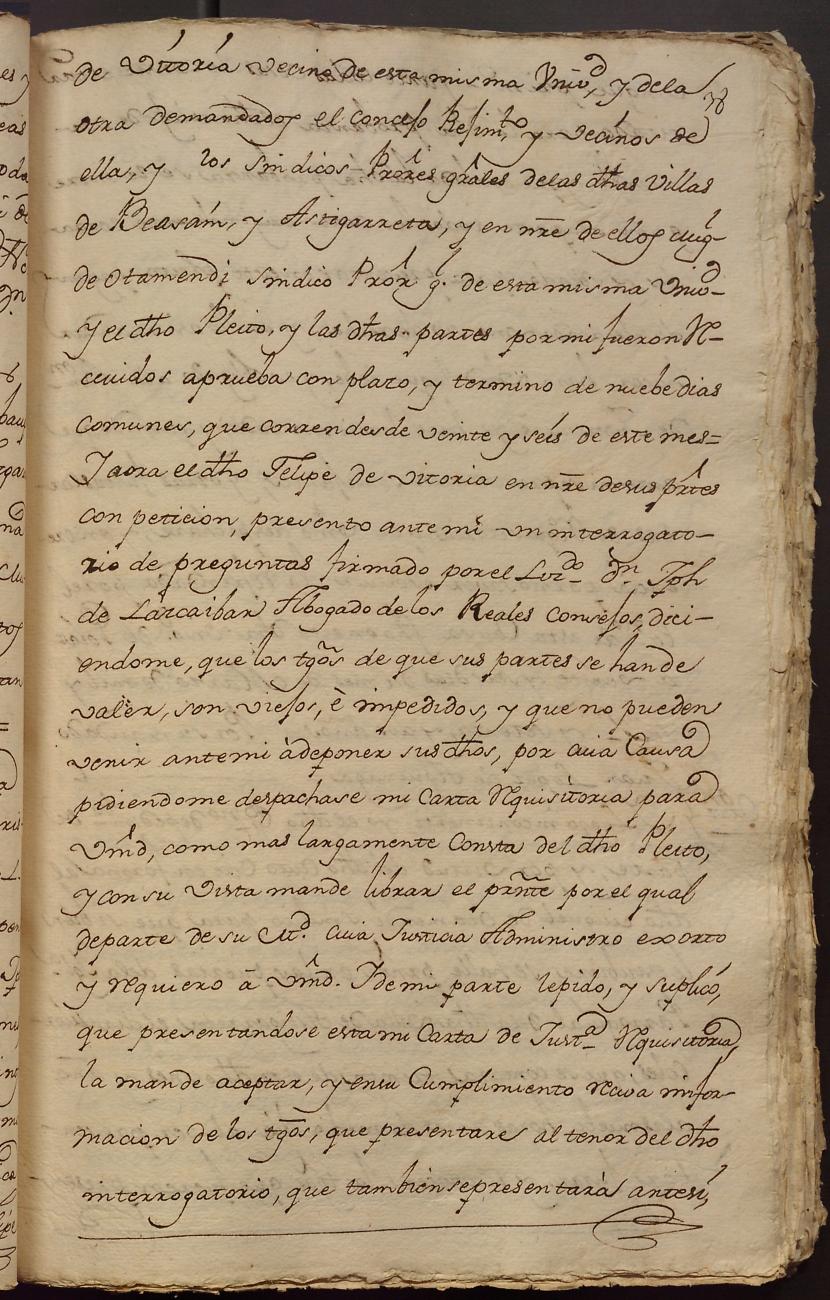 de Vitoria vecino de esta misma Univd, y dela
otra demandados el Concejo Rejimto y vecinos de
ella, y los Sindicos Prores grales delas dhas Villas
de Beasain, y Astigarreta, y en nre de ellos Mig
de Otamendi Sindico Pror g. de esta misma Univd
y el dho Pleito, y las dhas partes por mi fueron Re-
cividos aprueba con plazo, y termino de nuebe dias
comunes, que corren desde veinte y seis de este mes=
Y aora el dho Felipe de Vitoria en nre desus prtes
con peticion, presento ante mi un interrogato-
rio de preguntas firmado por el Lizdo Dn Jph
de Larcaibar Abogado de los Reales Consejos, dici-
endome, que los tgos de que sus partes se han de
valer, son viejos, è impedidos, y que no pueden
venir antemi à deponer sus dhos, por cuia Causa
pidiendome despachase mi Carta Requisitoria para
Vmd, como mas largamente Consta del dho Pleito,
y con su Vista mande librar el prnte por el qual
departe de su Md. cuia Justicia Administro exorto
y requiero à Vmd. Ydemi parte lepido, y suplico,
que presentandose esta mi Carta de Justa Requisitoria,
la mande aceptar, y ensu Cumplimiento reciva infor-
macion de los tgos, que presentares al tenor del dho
interrogatorio, que tambien sepresentarà antesi,